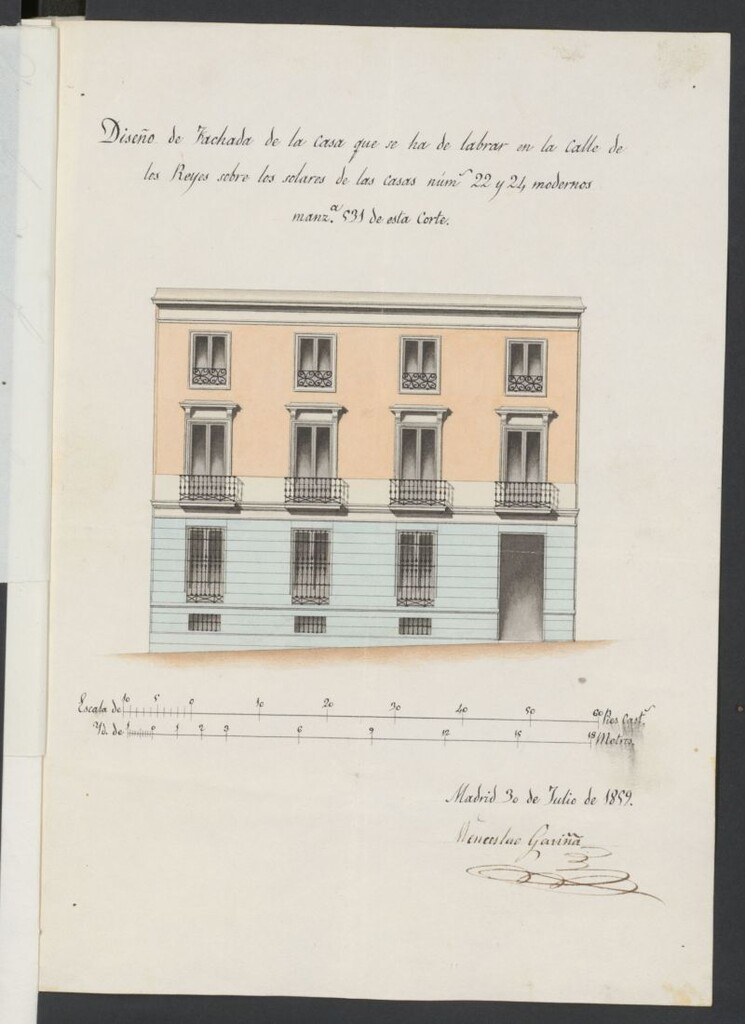 Diseño de Fachada de la casa que se ha de labrar en la calle de
los Reyes sobre los solares de las casas núm.s 22 y 24 modernos
manz.a 531 de esta Corte.
Escala de 10 5 0 10 20 30 40 50 60 Pies Cast.s
Yd. de 1 0 1 2 3 6 9 12 15 18 Metros.
Madrid 30 de Julio de 1859.
Wenceslao Gaviña